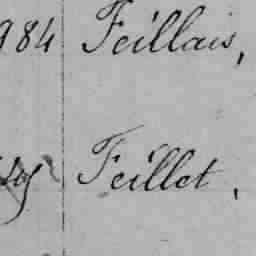 984 Feillais,
Feillet,